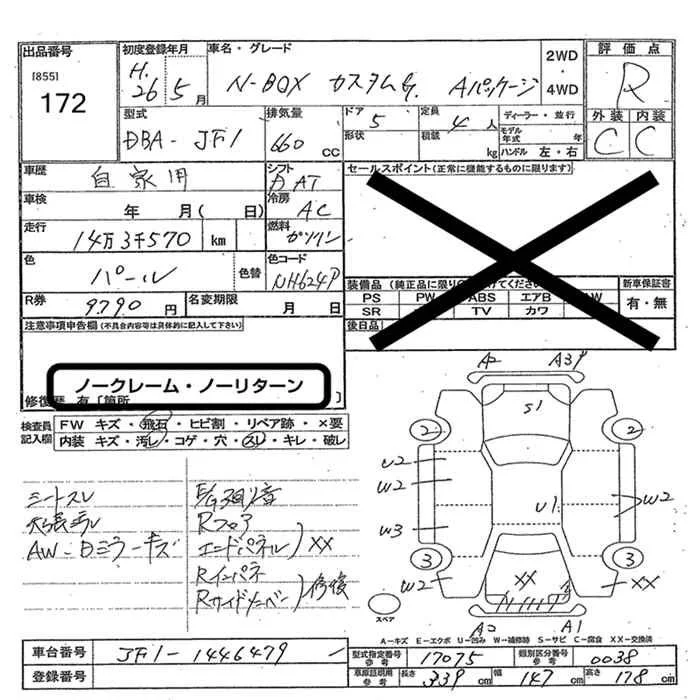 出品番号
[855]
172
初度登録年月
H.26 5月
車名・グレード
N-BOX カスタムG. Aパッケージ
2WD
・
4WD
評価点
R
外装 内装
C C
型式
DBA-JF1
排気量
660 CC
ドア 5
形状
定員 4人
積載 kg
ディーラー・並行
モデル年式 年
ハンドル 左・右
車歴
自家用
シフト
DAT
車検
年 月( 日)
冷房
AC
走行
14万3千570 km
燃料
ガソリン
色
パール
色替
色コード
NH624P
R券
9790円
名変期限
月 日
セールスポイント(正常に機能するものに限ります)
装備品(純正品に限り
けてください)
PS PW ABS エアB AW
SR TV カワ
後日品
新車保証書
有・無
注意事項申告欄(不具合内容等は具体的に記入して下さい)
ノークレーム・ノーリターン
修復歴 有〔箇所 〕
検査員記入欄
FW キズ・飛石・ヒビ割・リペア跡・×要
内装 キズ・汚レ・コゲ・穴・スレ・キレ・破レ
シートスレ
AW-Dミラーキズ
E/G廻り音
Rフロア
エンドパネル XX
Rインパネ
Rサイドメンバー 修復
A2 A3P
S1
2 2
U2
W2
W3
U1
W2
3 3
W2
XX
XX
A2 A1
スペア
A-キズ E-エクボ U-凹み W-補修跡 S-サビ C-腐食 XX-交換済
車台番号
JF1-1446479
登録番号
型式指定番号
参考
17075
類別区分番号
参考
0038
車庫証明用
参考
長さ 339 cm
幅 147 cm
高さ 178 cm